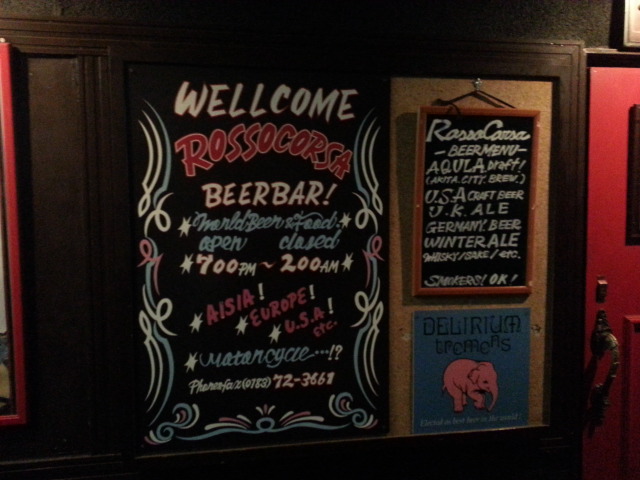 WELLCOME
ROSSOCORSA
BEERBAR!
World Beer & Food.
open closed
700PM ~ 200AM
AISIA!
EUROPE!
U.S.A!
etc.
Phone&fax(0183) 72-3661
RossoCorsa
-BEERMENU-
AQULA Draft!
(AKITA.CITY.BREW.)
U.S.A CRAFT BEER
U.K. ALE
GERMANY. BEER
WINTER ALE
WHISKY/SAKE/etc.
SMOKERS! OK!
DELIRIUM
tremens
Elected as best beer in the world!